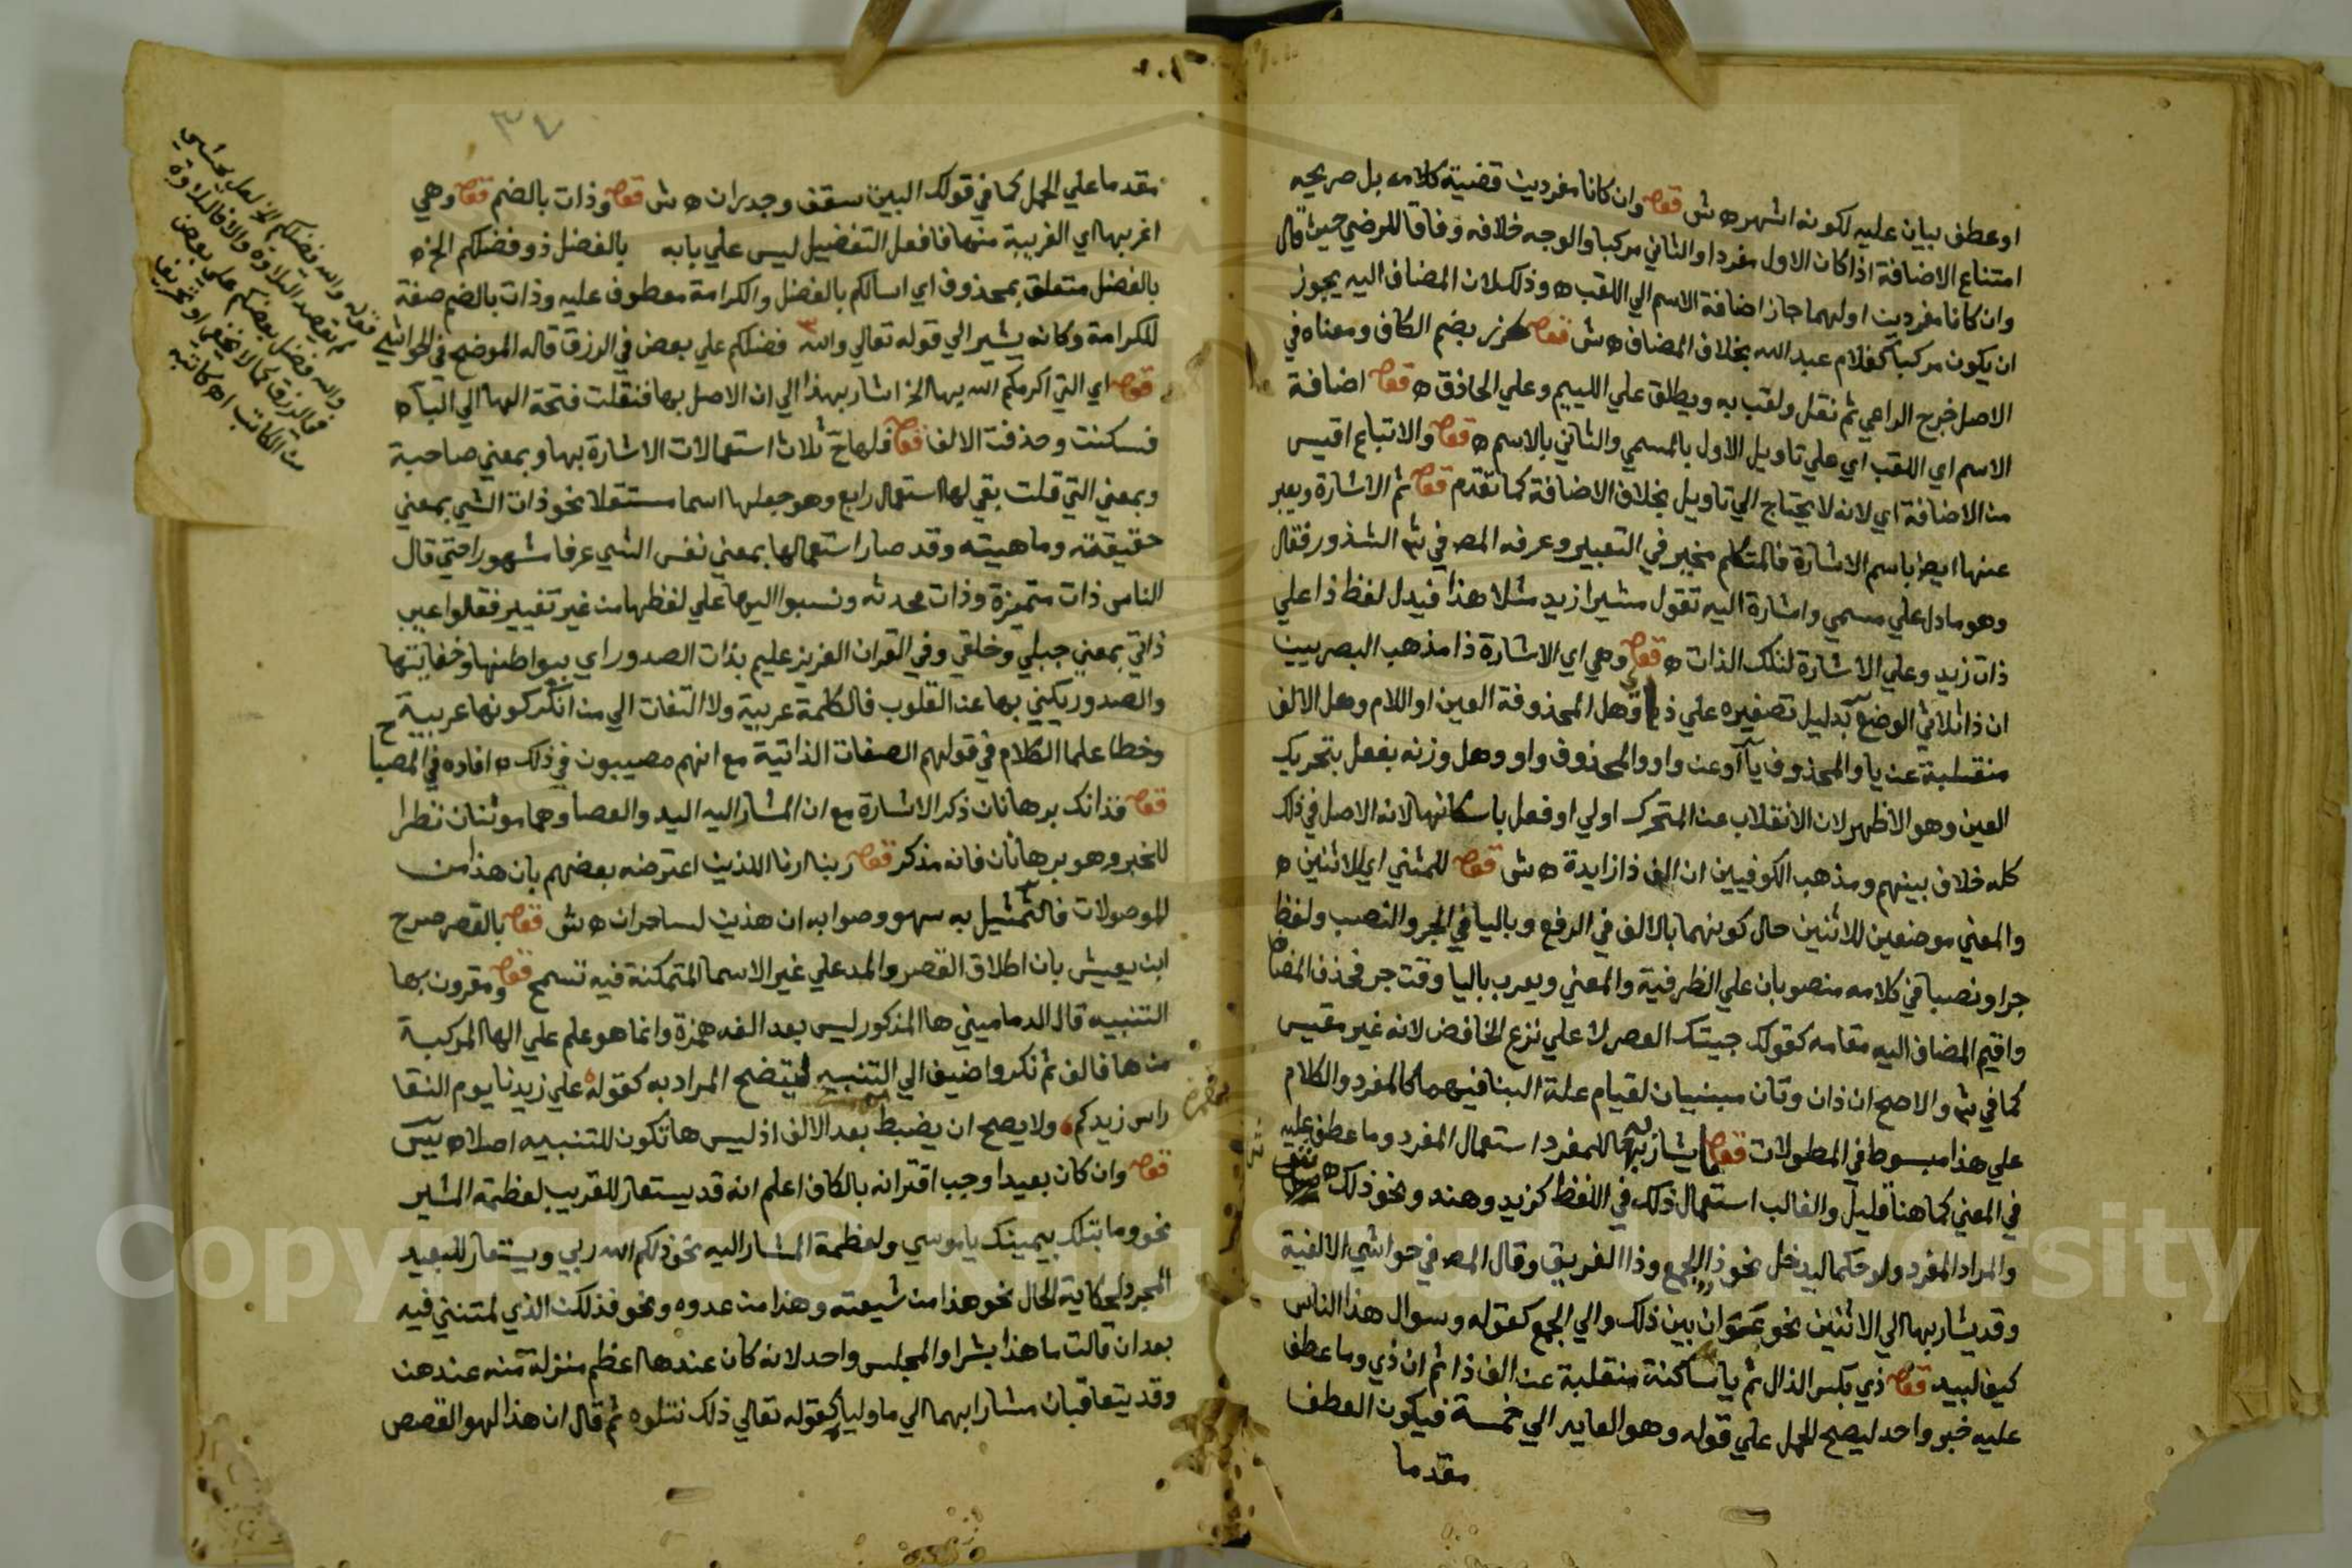 اوعطف بيان عليه لكونه اشهر ه ش قوله وان كانا مفردين قضية كلامه بل صريحه
امتناع الاضافة اذا كان الاول مفردا والثاني مركبا والوجه خلافه وفاقا للرضي حيث قال
وان كانا مفردين اولهما جاز اضافة الاسم الي اللقب ه وذلك لان المضاف اليه يجوز
ان يكون مركبا كغلام عبد الله بخلاف المضاف ه ش قوله كرز بضم الكاف ومعناه في
الاصل خرج الراعي ثم نقل ولقب به ويطلق علي اللييم وعلي الحاذق ه قوله اضافة
الاسم اي اللقب اي علي تاويل الاول بالمسمي والثاني بالاسم ه قوله والاتباع اقيس
من الاضافة اي لانه لا يحتاج الي تاويل بخلاف الاضافة كما تقدم قوله ثم الاشارة ويعبر
عنها ايضا باسم الاشارة فالمتكلم مخير في التعبير وعرفه المص في شر الشذور فقال
وهو ما دل علي مسمي واشارة اليه تقول مشيرا زيد مثلا هذا فيدل لفظ ذا علي
ذات زيد وعلي الاشارة لتلك الذات ه قوله وهي اي الاشارة ذا مذهب البصريين
ان ذا ثلاثي الوضع بدليل تصغيره علي ذيا وهل المحذوفة العين او اللام وهل الالف
منقلبة عن يا والمحذوف يآ او عن واو والمحذوف واو وهل وزنه بفعل بتحريك
العين وهو الاظهر لان الانقلاب عن المتحرك اولي او فعل باسكانها لانه الاصل في ذلك
كله خلاف بينهم ومذهب الكوفيين ان الف ذا زايدة ه ش قوله للمثني اي للاثنين ه
والمعني موضعين للاثنين حال كونهما بالالف في الرفع وباليا في الجر والنصب ولفظ
جرا ونصبا في كلامه منصوبان علي الظرفية والمعني ويعرب باليا وقت جر فحذف المضاف
واقيم المضاف اليه مقامه كقولك جيتك العصر لا علي نزع الخافض لانه غير مقيس
كما في شر والاصح ان ذان وتان مبنيان لقيام علة البنا فيهما كالمفرد والكلام
علي هذا مبسوط في المطولات قوله يشار بها للمفرد استعمال المفرد وما عطف عليه
في المعني كما هنا قليل والغالب استعمال ذلك في اللفظ كزيد وهند ونحو ذلك ه
والمراد المفرد ولو حكما ليدخل نحو ذا الجمع وذا الفريق وقال المص في حواشي الالفية
وقد يشار بها الي الاثنين نحو عوان بين ذلك والي الجمع كقوله وسوال هذا الناس
كيف لبيد قوله ذي بكسر الذال ثم يا ساكنة منقلبة عن الف ذا ثم ان ذي وما عطف
عليه خبر واحد ليصح الحمل علي قوله وهو العايد الي خمسة فيكون العطف
مقدما
٣٤
مقدما علي الحمل كما في قولك البيت سقف وجدران ه ش قوله وذات بالضم قوله وهي
اغربها اي الغريبة منها فافعل التفضيل ليس علي بابه بالفضل ذو فضلكم الخ ه
بالفضل متعلق بمحذوف اي اسالكم بالفضل والكرامة معطوف عليه وذات بالضم صفة
للكرامة وكانه يشير الي قوله تعالي والله فضلكم علي بعض في الرزق قاله الموضح في الحواشي
قوله اي التي اكرمكم الله بها الخ اشار بهذا الي ان الاصل بها فنقلت فتحة الها الي البا ه
فسكنت وحذفت الالف قوله فلها ح ثلاث استعمالات الاشارة بها وبمعني صاحبة
وبمعني التي قلت بقي لها استعمال رابع وهو جعلها اسما مستقلا نحو ذات الشي بمعني
حقيقته وماهيته وقد صار استعمالها بمعني نفس الشي عرفا مشهورا حتي قال
الناس ذات متميزة وذات محدثه ونسبوا اليها علي لفظها من غير تغيير فقالوا عيب
ذاتي بمعني جبلي وخلقي وفي القران العزيز عليم بذات الصدور اي ببواطنها وخفاياتها
والصدور يكني بها عن القلوب فالكلمة عربية ولا التفات الي من انكر كونها عربية
وخطا علما الكلام في قولهم الصفات الذاتية مع انهم مصيبون في ذلك ه افاده في المصباح
قوله فذانك برهانان ذكر الاشارة مع ان المشار اليه اليد والعصا وهما مونثان نظرا
للخبر وهو برهانان فانه مذكر قوله ربنا ارنا اللذين اعترضه بعضهم بان هذا من
الموصولات فالتمثيل به سهو وصوابه ان هذين لساحران ه ش قوله بالقصر صرح
ابن يعيش بان اطلاق القصر والمد علي غير الاسما المتمكنة فيه تسمح قوله ومقرون بها
التنبيه قال الدماميني ها المذكور ليس بعد الفه همزة وانما هو علم علي الها المركبة
من ها فالف ثم نكر واضيف الي التنبيه ليتضح المراد به كقوله علي زيدنا يوم النقا
راس زيدكم ولا يصح ان يضبط بعد الالف اذ ليس هاء تكون للتنبيه اصلا ه يس
قوله وان كان بعيدا وجب اقترانه بالكاف اعلم انه قد يستعار للقريب لعظمة المشير
نحو وما بتلك بيمينك يا موسي ولعظمة المشار اليه نحو ذلكم الله ربي ويستعار للبعيد
المجرد لحكاية الحال نحو هذا من شيعته وهذا من عدوه ونحو فذلكن الذي لمتنني فيه
بعد ان قالت ما هذا بشرا والمجلس واحد لانه كان عندها اعظم منزلة منه عندهن
وقد يتعاقبان مشارا بهما الي ما ولياه كقوله تعالي ذلك نتلوه ثم قال ان هذا لهو القصص
قوله والله فضلكم الخ لعل المحشي
لم يقصد التلاوة والا فالتلاوة
والله فضل بعضكم علي بعض
في الرزق كما لا يخفي او تحريف
من الكاتب اه كاتبه
Copyright © King Saud University